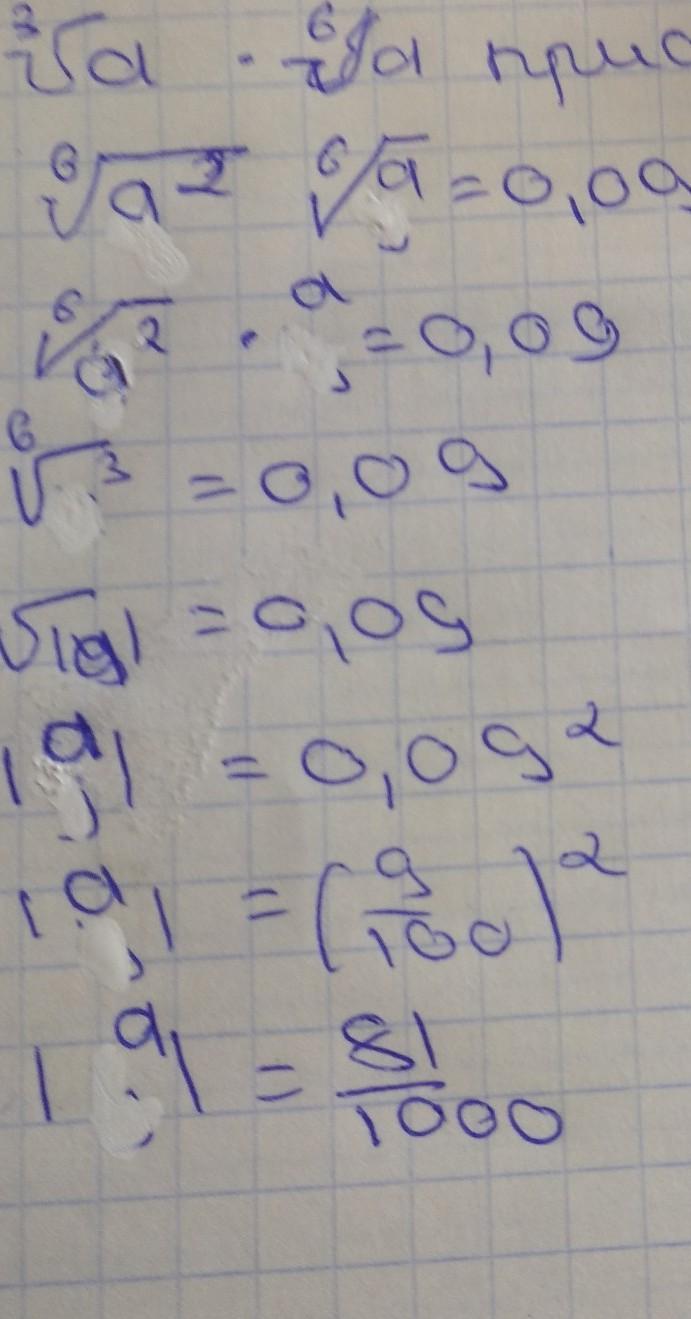 ∛a · ⁶√a при
⁶√a² ⁶√a = 0,09
⁶√a² · a = 0,09
⁶√ ³ = 0,09
√|a| = 0,09
|a| = 0,09²
|a| = (9/100)²
|a| = 81/1000